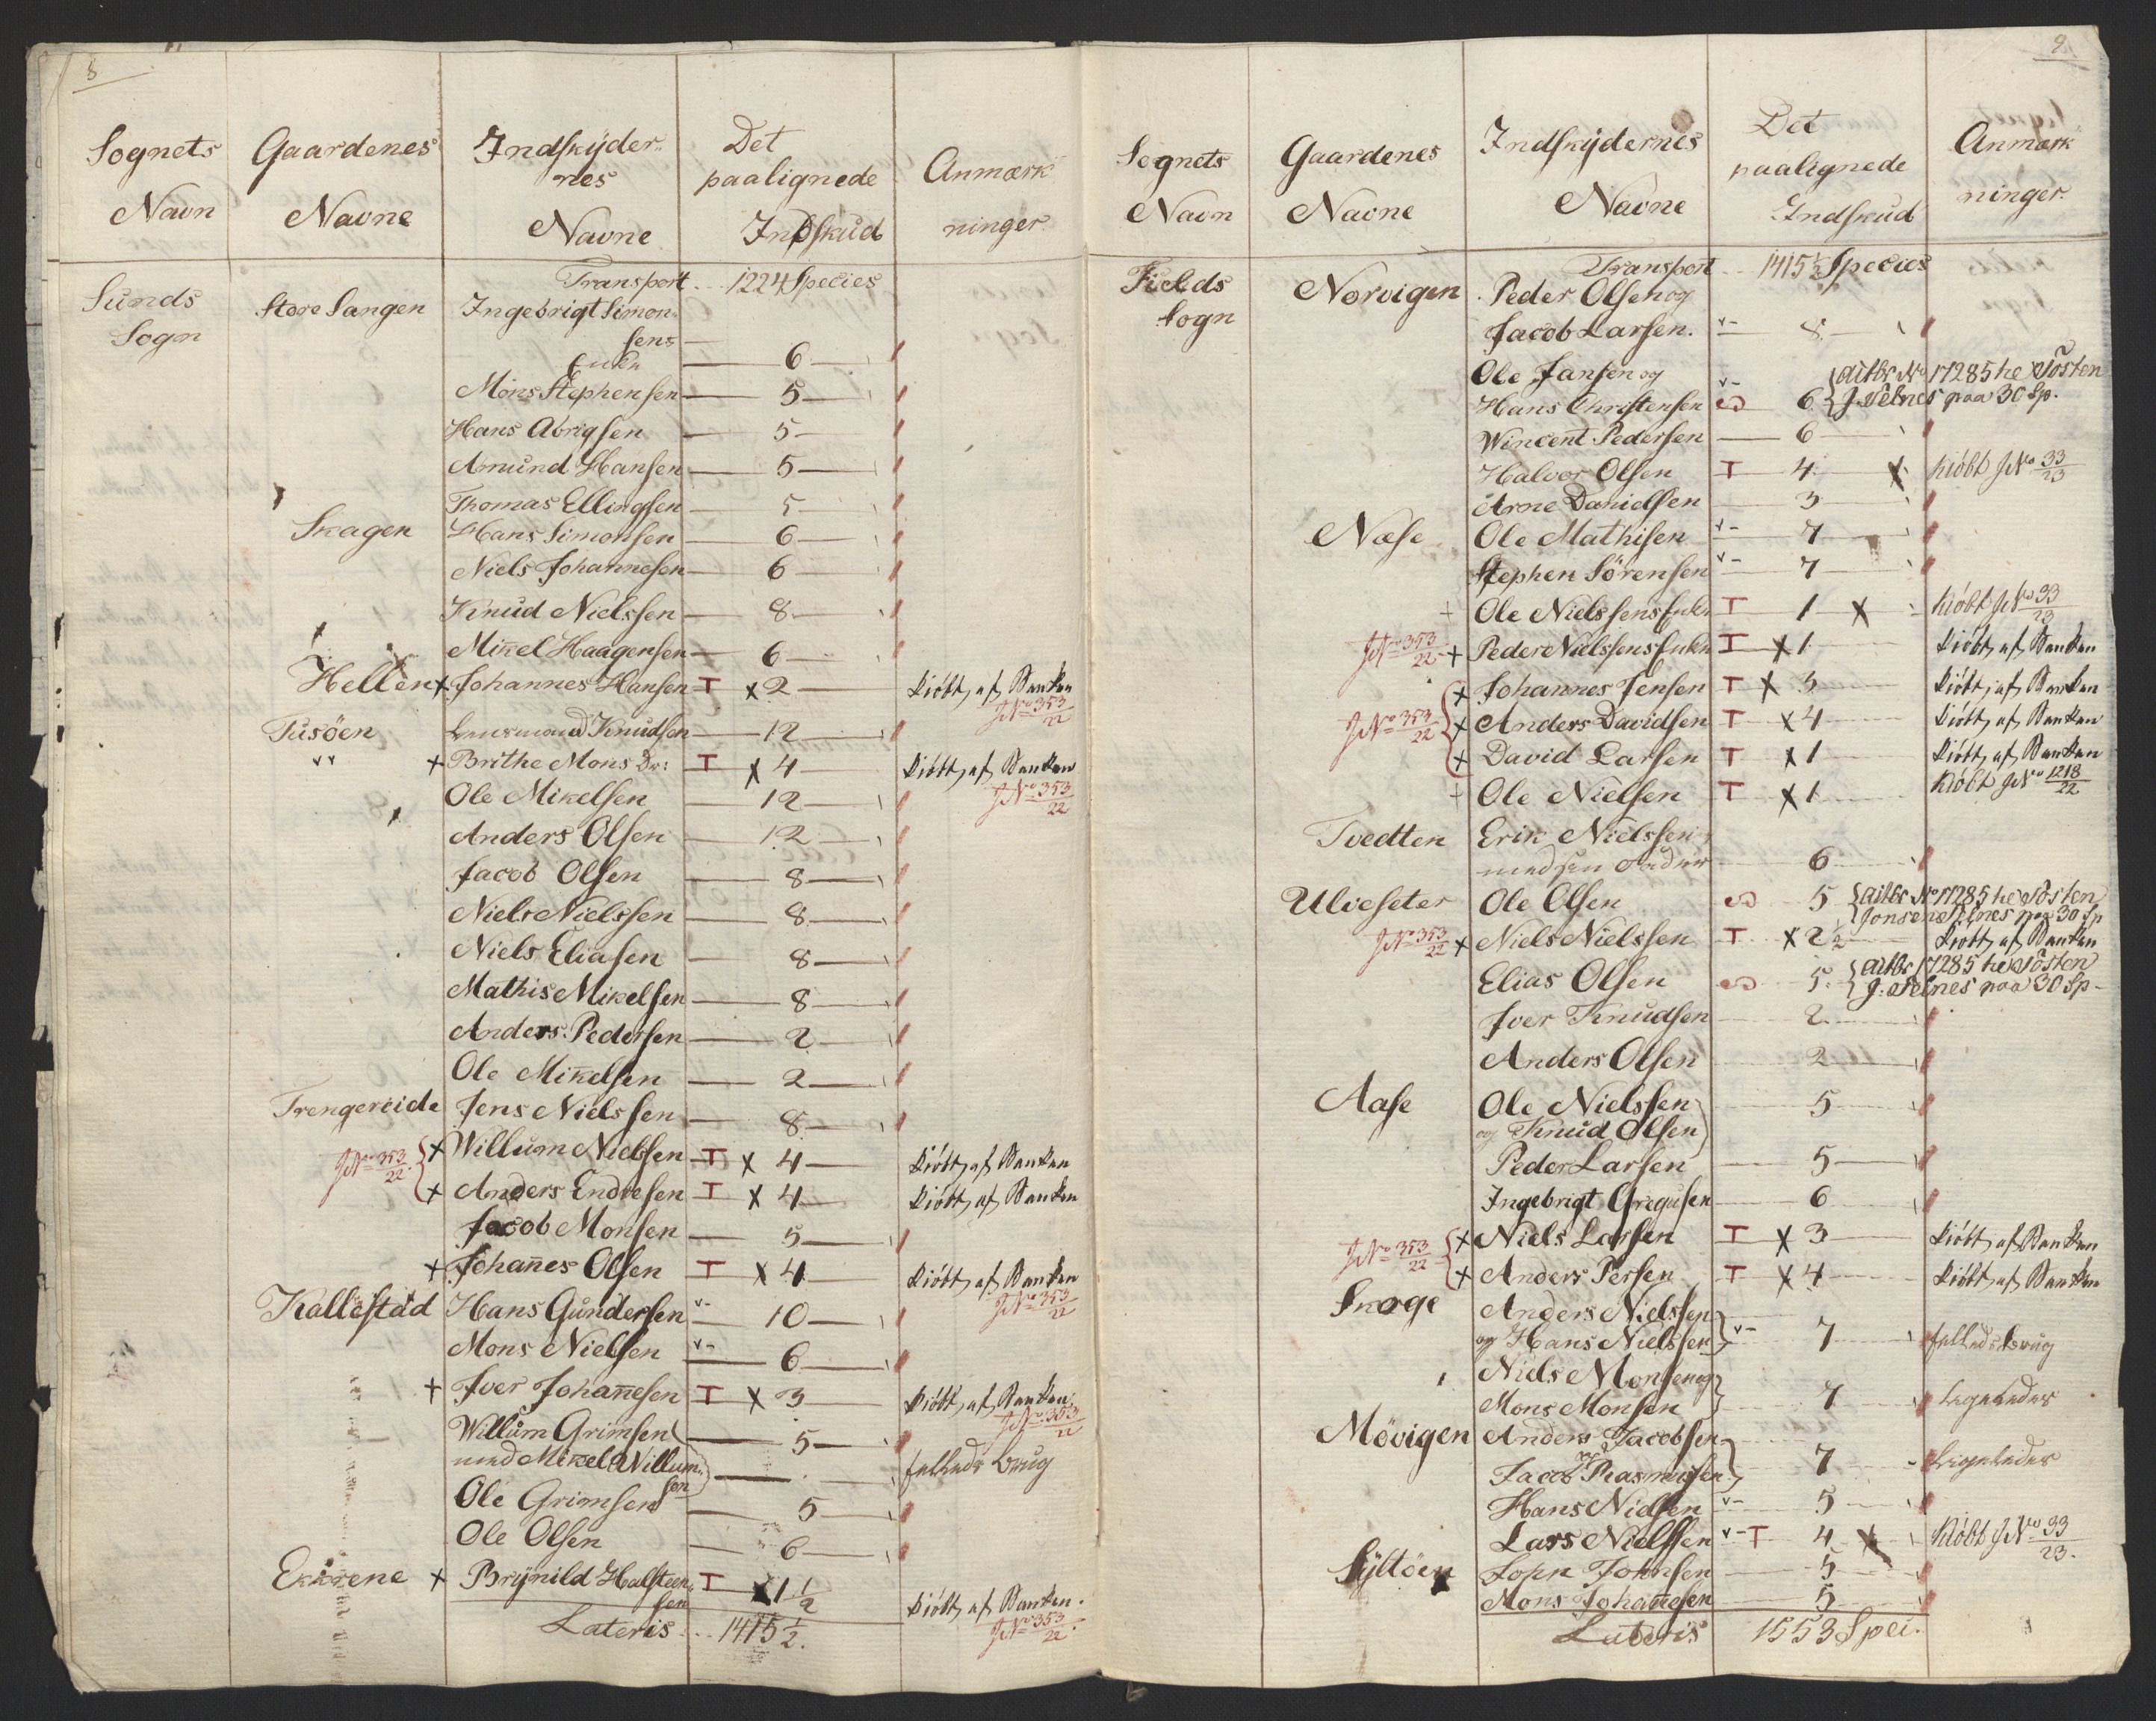 8
Sognets Navn | Gaardenes Navne | Indskÿder-nes Navne | Det paalignede Indskud | Anmærkninger
Transport 1224 Species
Sunds Sogn | Store Sangen | Ingebrigt Simon-
sens
Enke — 6
Mons Stephensen — 5
Hans Abrigsen — 5
Amund Hansen — 5
Thomas Ellingsen — 5
Skagen | Hans Simonsen — 6
Niels Johannesen — 6
Knud Nielssen — 8
Mikel Haagensen — 6
Hellen x Johannes Hansen T x 2 — Kiöbt af Banken
JNo 353/22
Tusöen | Lensmand Knudsen — 12
" + Brithe Mons Dr: T x 4 — Kiöbt af Banken
JNo 353/22
Ole Mikelsen — 12
Anders Olsen — 12
Jacob Olsen — 8
Niels Nielssen — 8
Niels Eliasen — 8
Mathis Mikelsen — 8
Anders Pedersen — 2
Ole Mikelsen — 2
Trengereide | Jens Nielssen — 8
JNo 353/22 { x Willum Nielssen T x 4 — Kiöbt af Banken
x Anders Endresen T x 4 — Kiöbt af Banken
Jacob Monsen — 5
+ Johan̄es Olsen T x 4 — Kiöbt af Banken
JNo 353/22
Kallestad | Hans Gundersen v- 10
Mons Nielsen v- 6
+ Iver Johan̄esen T x 3 — Kiöbt af Banken
JNo 353/22
Willum Grimsen — 5
med Mikel Willum-
sen — fælleds Brug
Ole Grimsen — 5
Ole Olsen — 6
Ekrene x Brÿnild Halsteen-
sen T x 1½ — Kiöbt af Banken.
JNo 353/22
Lateris 1415½.
9
Sognets Navn | Gaardenes Navne | Indskÿdernes Navne | Det paalignede Indskud | Anmærkninger.
Transport 1415½ Species
Fields Sogn | Norvigen | Peder Olsen og
Jacob Larsen. v- 8
Ole Jansen og v-
Hans Christensen 6 { No 17285 paa 30 Sp.
Wincent Pedersen — 6
Halvor Olsen T 4 x Kiöbt JNo 33/23
Arne Danielsen 3
Næse | Ole Mathisen v- 7
Stephen Sörensen v- 7
+ Ole Nielssens Enke T 1 x Kiöbt JNo 33/23
JNo 353/22 + Peder Nielssens Enke T x 1 Kiöbt af Banken
x Johannes Jensen T x 3 Kiöbt af Banken
JNo 353/22 { x Anders Davidsen T x 4 Kiöbt af Banken
x David Larsen T x 1 Kiöbt af Banken
+ Ole Nielsen T x 1 Kiöbt JNo 1218/22
Tvedten | Erik Nielssen
med sin Fader 6
Ulveseter | Ole Olsen 5 { No 17285 paa 30 Sp
JNo 353/22 x Niels Nielssen T x 2½ Kiöbt af Banken
Elias Olsen 5 { 17285 paa 30 Sp
Iver Knudsen 2
Anders Olsen 2
Aase | Ole Nielssen
og Knud Olsen) 5
Peder Larsen 5
Ingebrigt Gregusen 6
JNo 353/22 { x Niels Larsen T x 3 Kiöbt af Banken
x Anders Persen T x 4 Kiöbt af Banken
Skoge | Anders Nielssen
og Hans Nielssen} v- 7 fælleds brug
Niels Monsen og
Mons Monsen 7 Ligeledes
Mövigen | Anders Jacobsen
og
Jacob Rasmussen} 7 Ligeledes
Hans Nielsen v- 5
Lars Nielssen v- T 4 x Kiöbt JNo 33/23.
Sÿltöen | John Johnsen 5
Mons Johan̄esen 5
Lateris 1553 Spei.